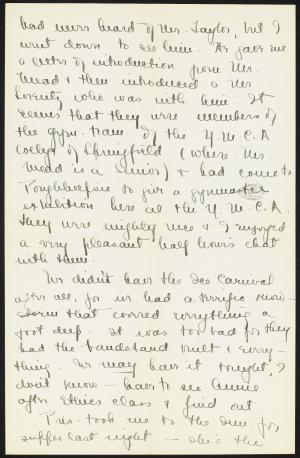 had never heard of Mr. Taylor, but I
went down to see him. He gave me
a letter of introduction from Mr.
Mead & then introduced a Mr
who was with him. It
seems that they were members of
the Gym. team of the Y.M.C.A
College of Springfield (where Mr.
Mead is a Senior) & had come to
Poughkeepsie to give a gymnastic
exhibition here at the Y.M.C.A.
They were mighty nice & I enjoyed
a very pleasant half hour's chat
with them.
We didn't have the Ice Carnival
after all, for we had a terrific snow-
storm that covered everything a
foot deep. It was too bad for they
had the bandstand built & every-
thing. We may have it tonight, I
don't know - have to see Annie
after Ethics class & find out.
Pris. took me to the Inn for
supper last night - she's the